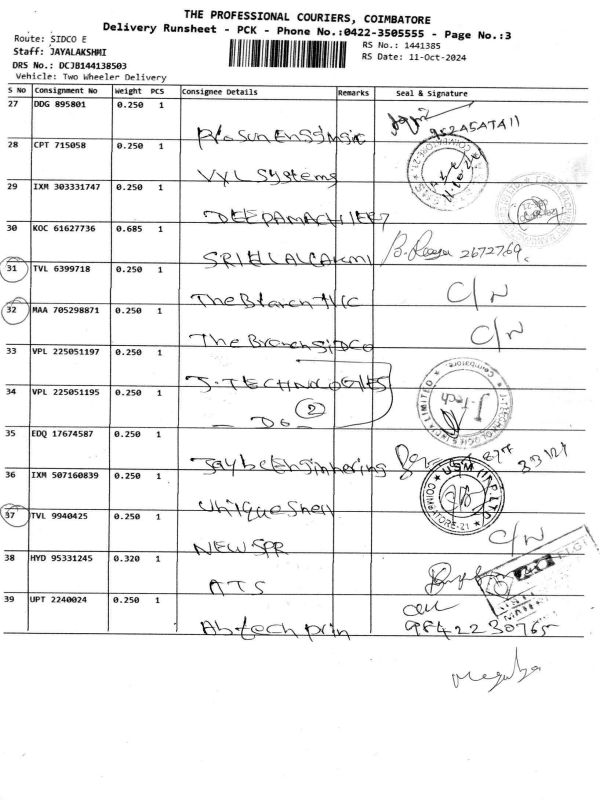 THE PROFESSIONAL COURIERS, COIMBATORE
Delivery Runsheet - PCK - Phone No.:0422-3505555 - Page No.:3
Route: SIDCO E
RS No.: 1441385
Staff: JAYALAKSHMI
RS Date: 11-Oct-2024
DRS No.: DCJB144138503
Vehicle: Two Wheeler Delivery
S No Consignment No Weight PCS Consignee Details Remarks Seal & Signature
27 DDG 895801 0.250 1
28 CPT 715058 0.250 1
VXL Systems
29 IXM 303331747 0.250 1
30 KOC 61627736 0.685 1
2672769
31 TVL 6399718 0.250 1
The Branch TVC C/N
32 MAA 705298871 0.250 1
The Branch SIDCO C/N
33 VPL 225051197 0.250 1
J-TECHNOLOGIES
34 VPL 225051195 0.250 1
2
- DO -
35 EDQ 17674587 0.250 1
Engineering
36 IXM 507160839 0.250 1
Unique Shell
37 TVL 9940425 0.250 1
NEW SPR C/N
38 HYD 95331245 0.320 1
ATS
39 UPT 2240024 0.250 1
Abtech prin 9842230765